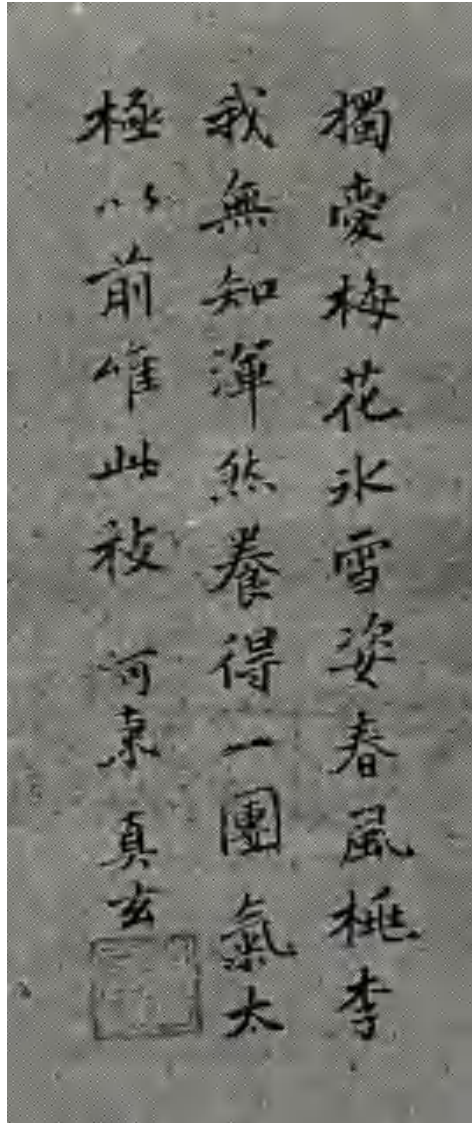 獨愛梅花氷雪姿春風桃李
我無知渾然養得一團氣太
極以前唯此枝 河東 真玄